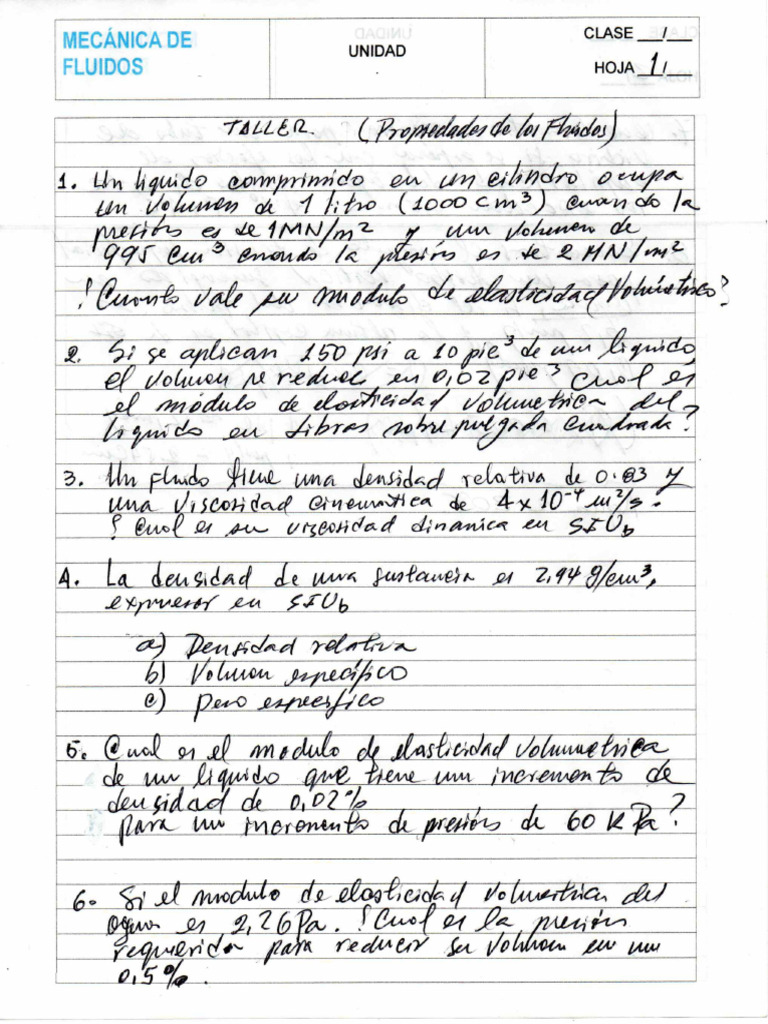 MECÁNICA DE
FLUIDOS
UNIDAD
CLASE __/__
HOJA 1/__
TALLER. (Propiedades de los Fluidos)
1. Un liquido comprimido en un cilindro ocupa
un volumen de 1 litro (1000 cm³) cuando la
presión es de 1MN/m² y un volumen de
995 cm³ cuando la presión es de 2 MN/m²
¿Cuanto vale su modulo de elasticidad Volumétrico?
2. Si se aplican 150 psi a 10 pie³ de un liquido,
el volumen se reduce en 0,02 pie³ cual es
el módulo de elasticidad volumetrica del
liquido en libras sobre pulgada cuadrada?
3. Un fluido tiene una densidad relativa de 0.83 y
una viscosidad cinematica de 4x10⁻⁴ m²/s.
¿Cual es su viscosidad dinamica en SIUb
4. La densidad de una sustancia es 2,94 g/cm³,
expresar en SIUb
a) Densidad relativa
b) Volumen específico
c) Peso especifico
5. Cual es el modulo de elasticidad volumetrica
de un liquido que tiene un incremento de
densidad de 0,02%
para un incremento de presión de 60 kPa?
6. Si el modulo de elasticidad volumetrica del
agua es 2,2GPa. ¿Cual es la presión
requerida para reducir su volumen en un
0,5%.